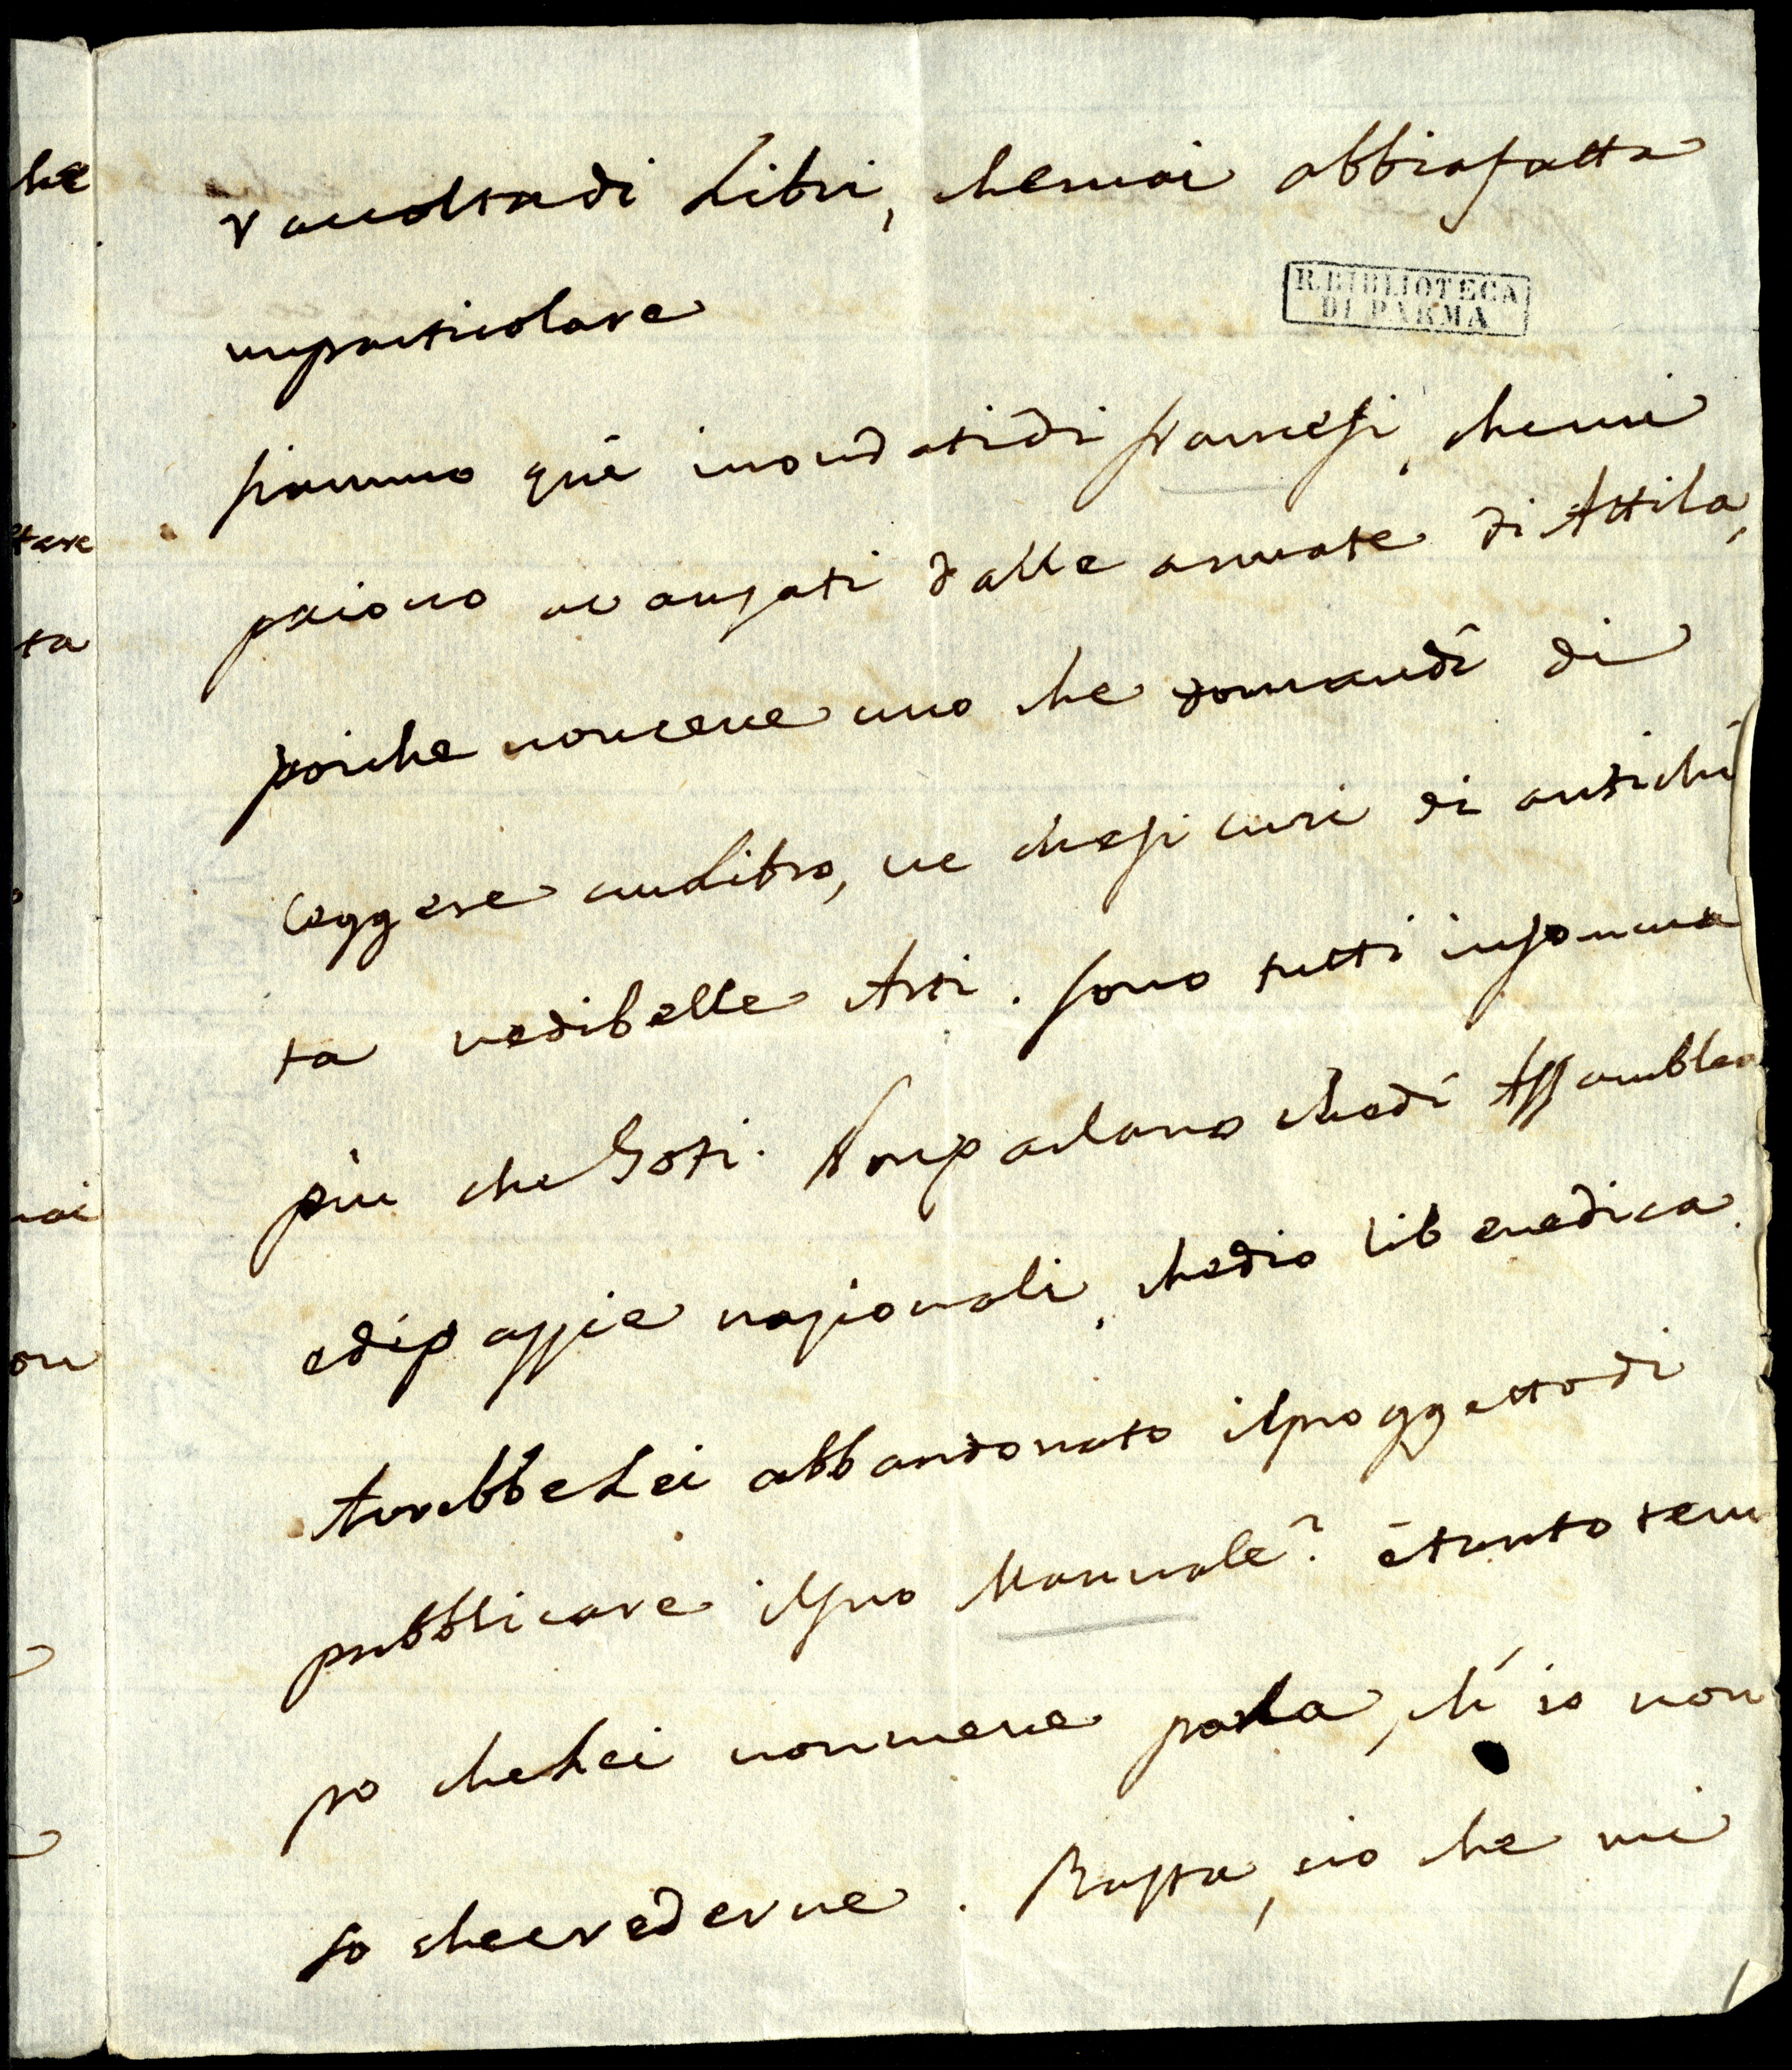 he
raccolta di Libri, che mai abbia fatta
R. BIBLIOTECA
DI PARMA
un particolare
siammo quì inondati di francesi, che mi
tare
paiono avanzati dalle armate di Attila,
ta
poiche non cene uno che domandi di
leggere un Libro, ne che si curi di antichi
ta ne di belle Arti. sono tutti insomma
più che Goti. Non parlano che di Assamblea
e di passie nazionali, che dio li benedica.
mai
on
Avrebbe Lei abbandonato il proggetto di
pubblicare il suo Manuale? è tanto tem
po che Lei non mene parla, ch' io non
so che crederne. Basta, cio che mi